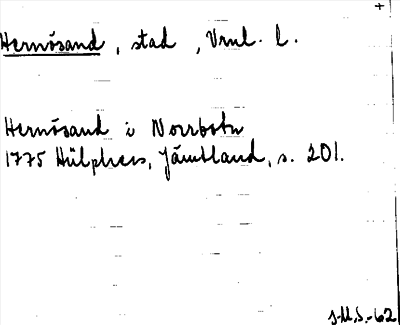 +
Hernösand, stad, Vrnl. l.
Hernösand i Norrbotn
1775 Hülphers, Jämtland, s. 201.
J.M.S.-62